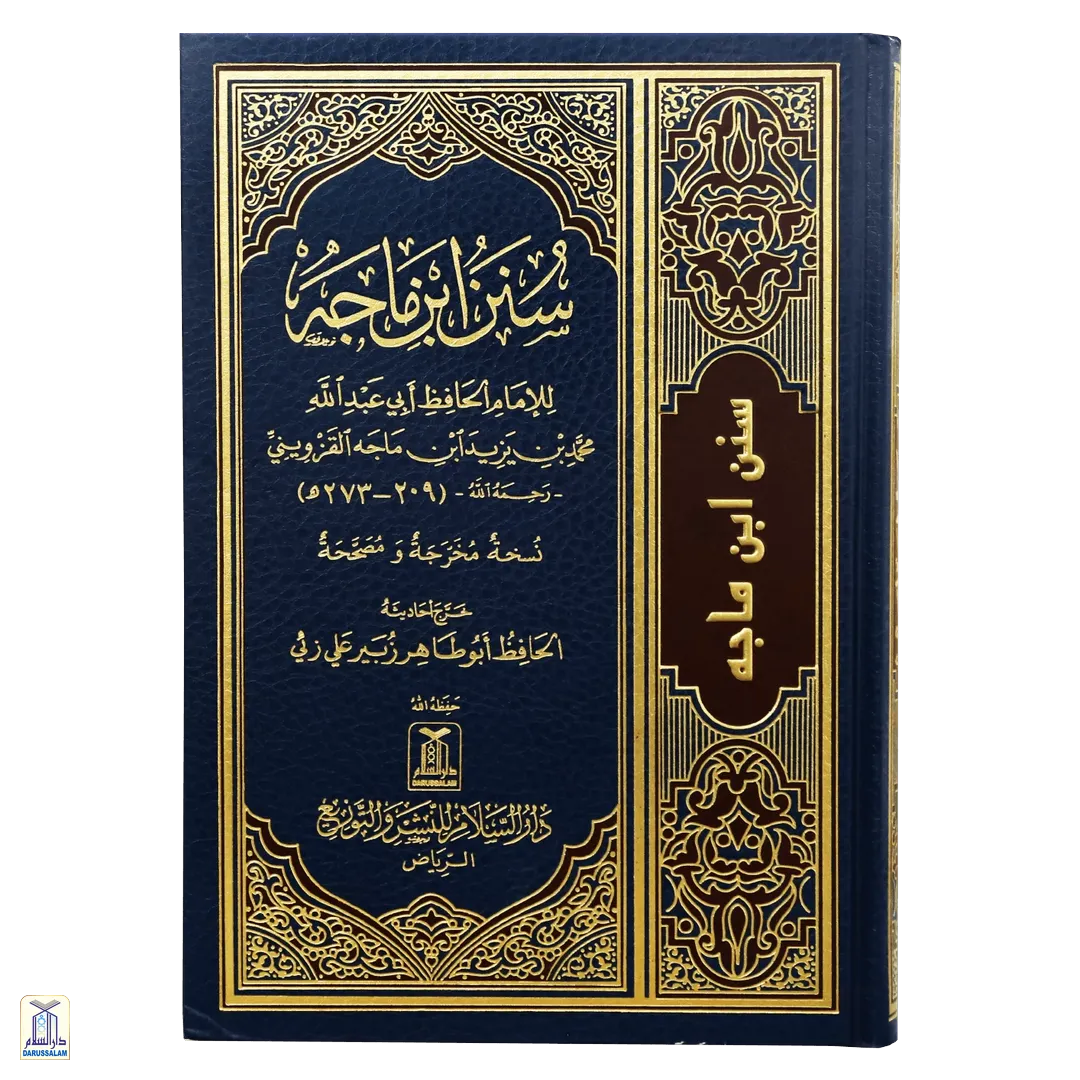 سُنَنُ ابْنِ مَاجَهْ
لِلإِمَامِ الحَافِظِ أَبِي عَبْدِ اللَّهِ
مُحَمَّدِ بْنِ يَزِيدَ ابْنِ مَاجَه القَزْوِينِيِّ
- رَحِمَهُ اللَّهُ - (٢٠٩ – ٢٧٣ هـ)
نُسخةٌ مُخَرَّجَةٌ وَ مُصَحَّحَةٌ
خَرَّجَ أحَادِيثَهُ
الحَافِظُ أَبُو طَاهِر زُبَير عَلي زئي
حَفِظَهُ اللهُ
دارالسلام
DARUSSALAM
دَارُ السَّلَامِ لِلنَّشْرِ وَالتَّوْزِيعِ
الرِّيَاض
سنن ابن ماجه
دارالسلام
DARUSSALAM